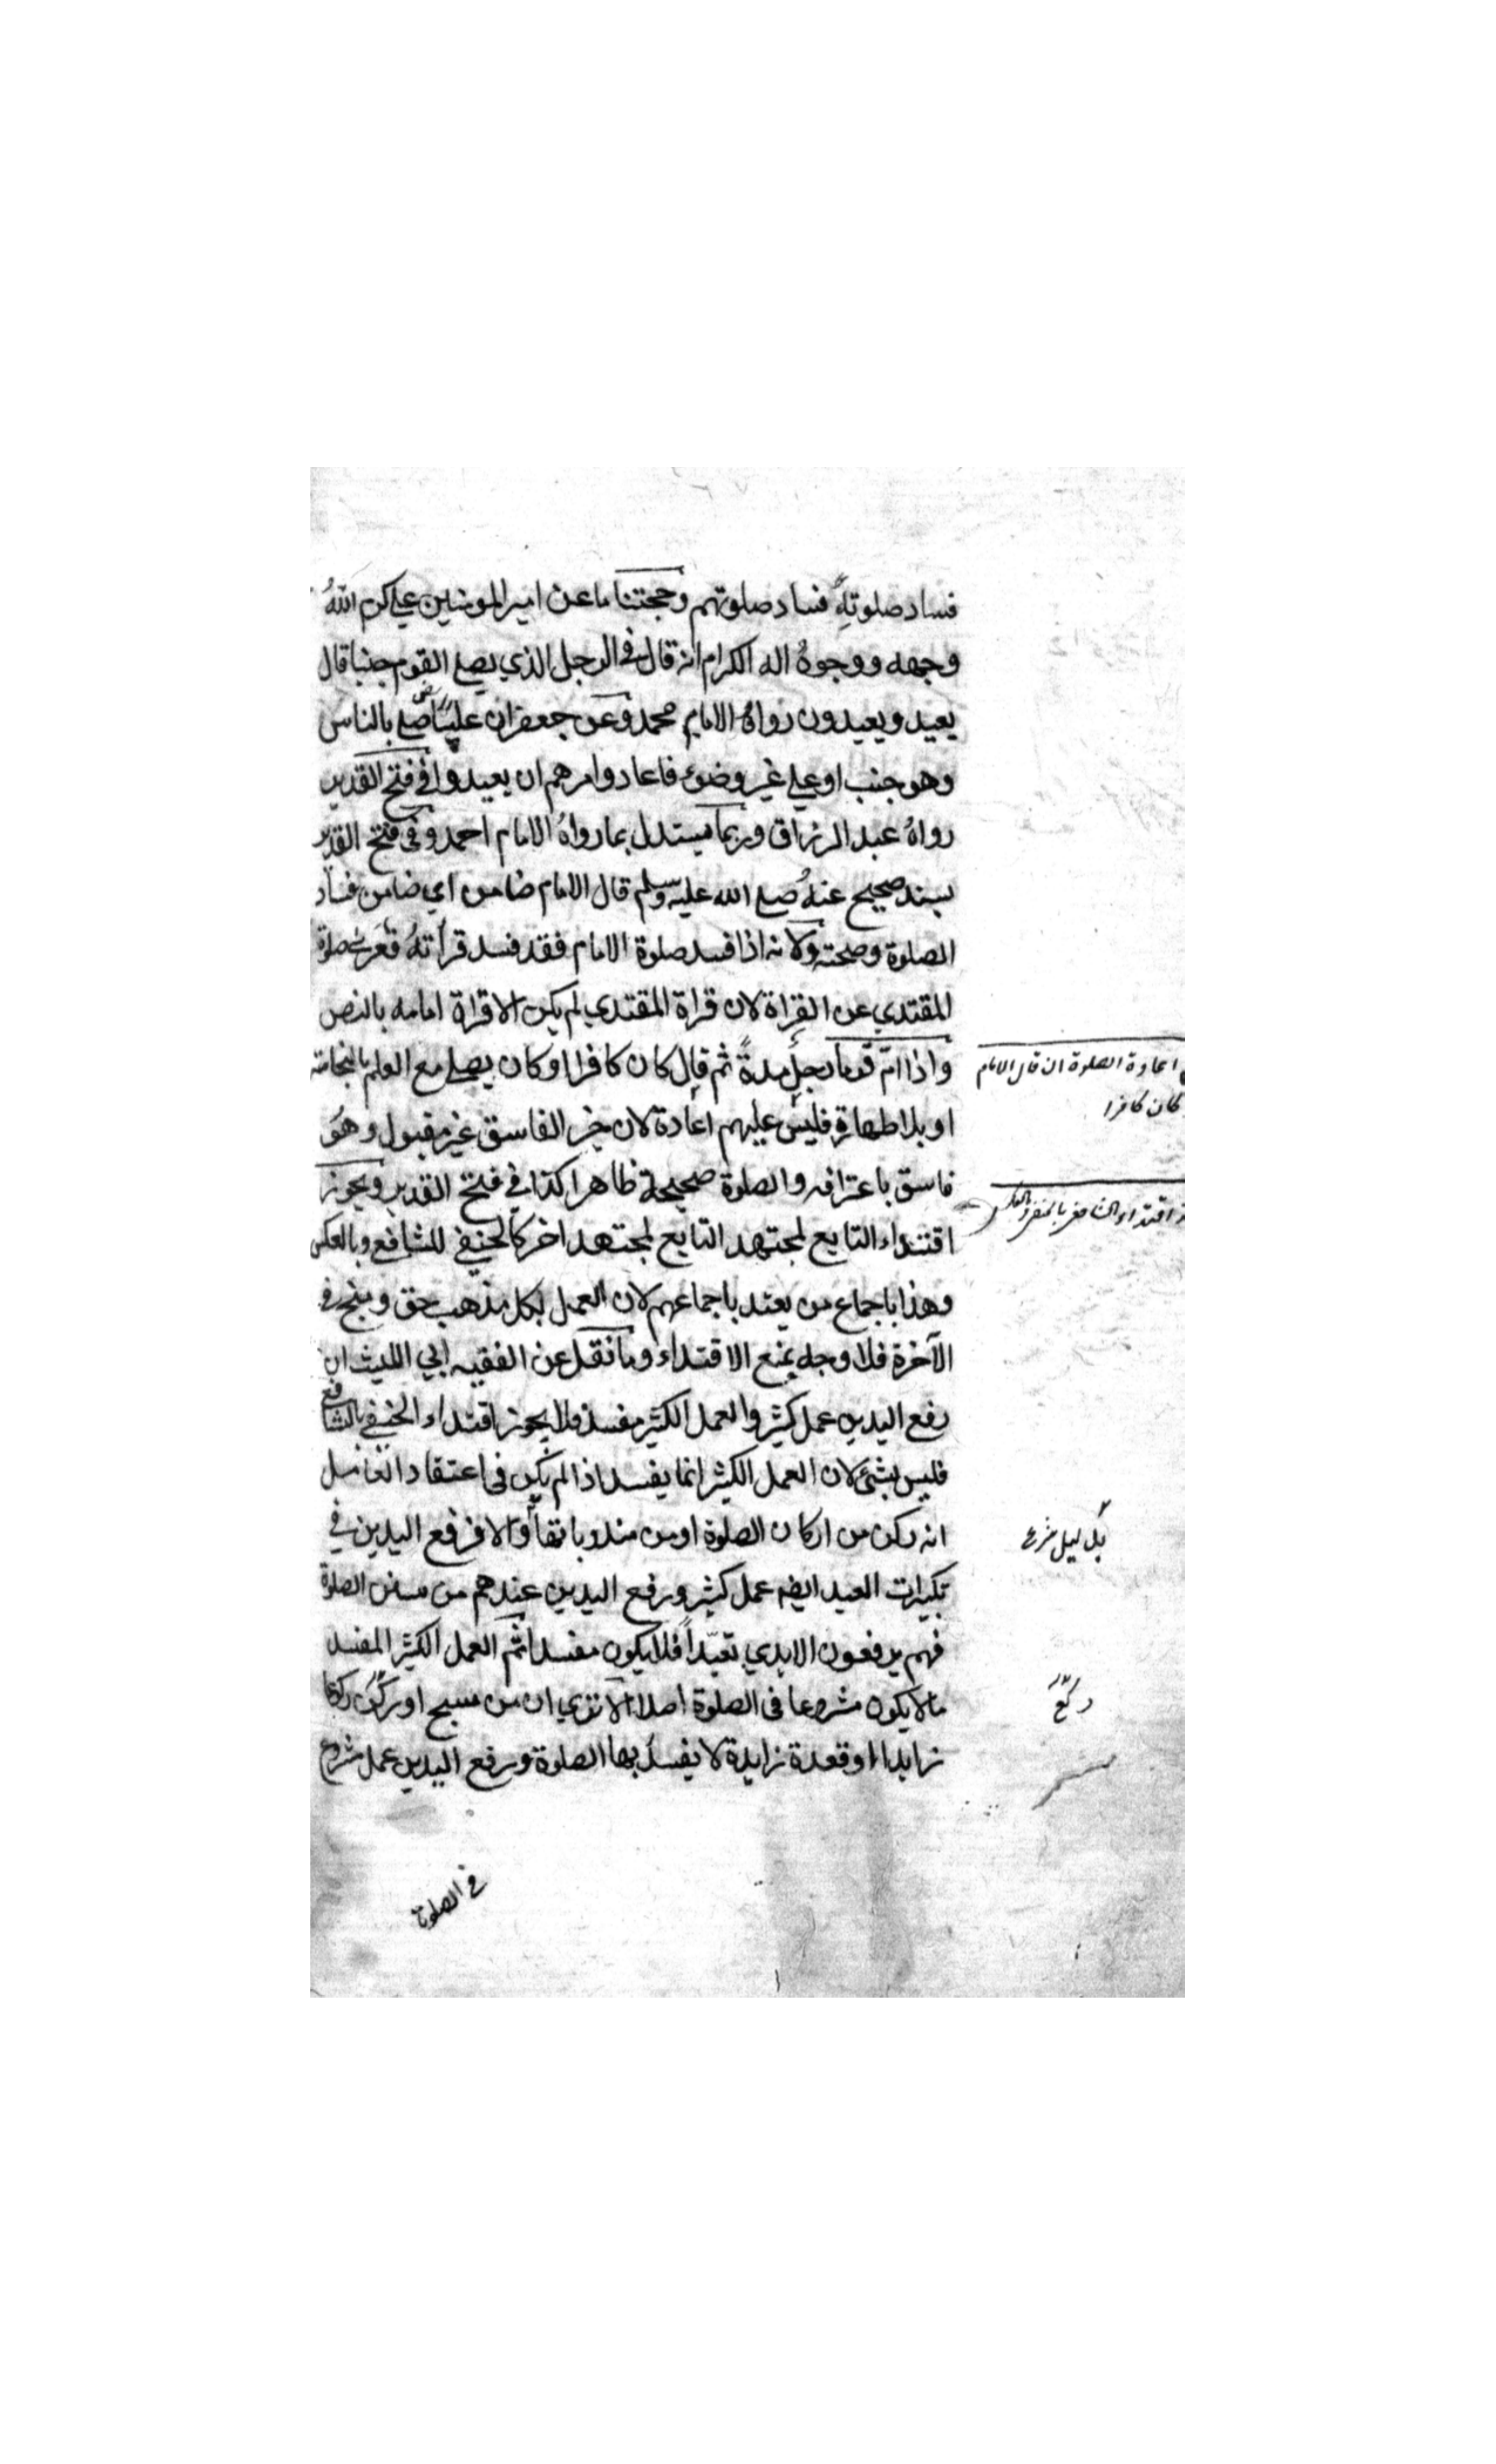 فساد صلوته فساد صلوتهم وحجتنا ما عن امير المومنين علي كرم الله
وجهه ووجوه اله الكرام انه قال في الرجل الذي يصلي القوم جنبا قال
يعيد ويعيدون رواه الامام محمد وعن جعفر ان عليا رض صلى بالناس
وهو جنب او علي غير وضوء فاعاد وامرهم ان يعيدوا في فتح القدير
رواه عبد الرزاق وربما يستدل بما رواه الامام احمد وفي فتح القدير
بسند صحيح عنه صلى الله عليه وسلم قال الامام ضامن اي ضامن فساد
الصلوة وصحته ولانه اذا فسد صلوة الامام فقد فسد قرأته فعري صلوة
المقتدي عن القراة لان قراة المقتدي لم يكن الا قراة امامه بالنص
واذا ام قوما رجل مدة ثم قال كان كافرا او كان يصلي مع العلم بالنجاسة
او بلا طهارة فليس عليهم اعادة لان خبر الفاسق غير مقبول وهو
فاسق باعترافه والصلوة صحيحة ظاهرا كذا في فتح القدير ويجوز
اقتداء التابع لمجتهد التابع لمجتهد اخر كالحنفي للشافعي وبالعكس
وهذا باجماع من يعتد باجماعهم لان العمل بكل مذهب حق ومنج في
الآخرة فلا وجه بمنع الاقتداء وما نقل عن الفقيه ابي الليث ان
رفع اليدين عمل كثير والعمل الكثير مفسد فلا يجوز اقتداء الحنفي بالشافعي
فليس بشئ لان العمل الكثير انما يفسد اذا لم يكن في اعتقاد الفاعل
انه ركن من اركان الصلوة او من مندوباتها والا فرفع اليدين في
تكبيرات العيد ايضه عمل كثير ورفع اليدين عندهم من سنن الصلوة
فهم يرفعون الايدي تعبدا فلا يكون مفسدا ثم العمل الكثير المفسد
ما لا يكون مشروعا في الصلوة اصلا الا تري ان من سبح او ركع ركوعا
زايدا او قعدة زايدة لا يفسد بها الصلوة ورفع اليدين عمل مشروع
في الصلوة
اعادة الصلوة ان قال الامام
كان كافرا
اقتداء الشافعي بالحنفي وبالعكس
بدليل شرعي
ركع